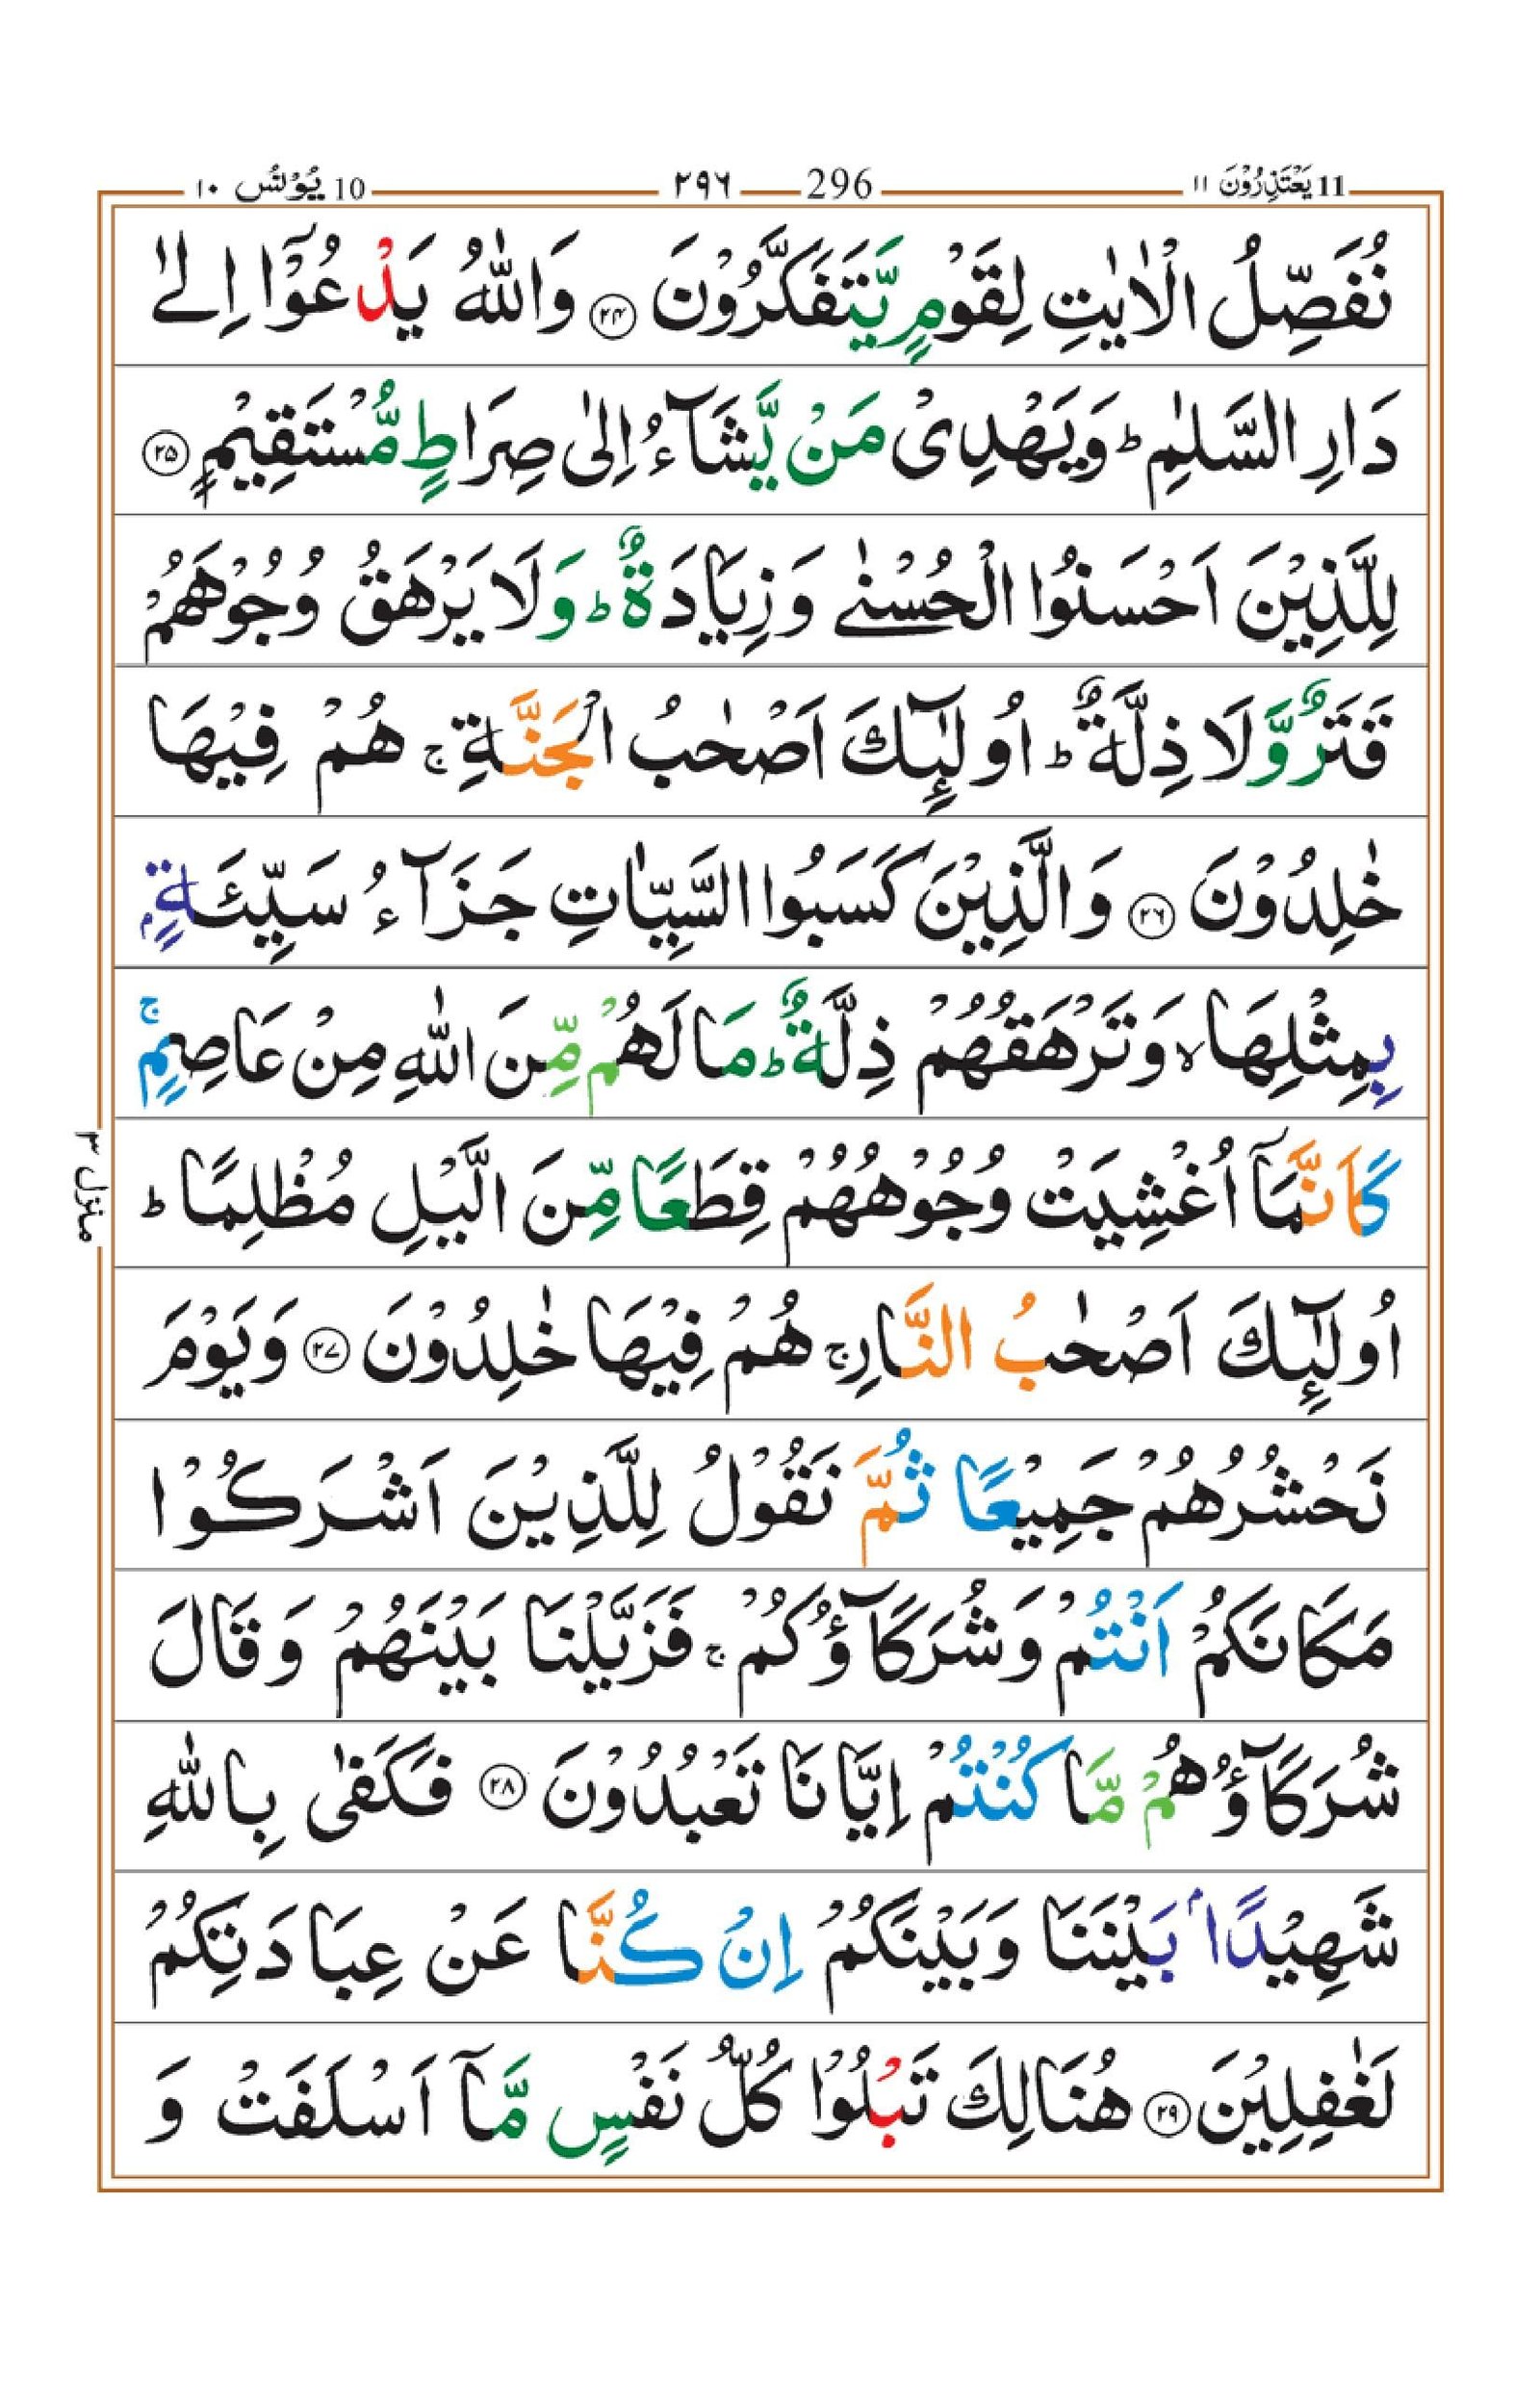 11 يَعْتَذِرُوْنَ ۱۱ 296 ۲۹۶ 10 يُوْنُس ۱۰
نُفَصِّلُ الْاٰيٰتِ لِقَوْمٍ يَّتَفَكَّرُوْنَ ﴿۲۴﴾ وَاللّٰهُ يَدْعُوْۤا اِلٰى
دَارِ السَّلٰمِ ؕ وَيَهْدِىْ مَنْ يَّشَآءُ اِلٰى صِرَاطٍ مُّسْتَقِيْمٍ ﴿۲۵﴾
لِلَّذِيْنَ اَحْسَنُوا الْحُسْنٰى وَزِيَادَةٌ ؕ وَلَا يَرْهَقُ وُجُوْهَهُمْ
قَتَرٌ وَّلَا ذِلَّةٌ ؕ اُولٰٓئِكَ اَصْحٰبُ الْجَنَّةِ ۚ هُمْ فِيْهَا
خٰلِدُوْنَ ﴿۲۶﴾ وَالَّذِيْنَ كَسَبُوا السَّيِّاٰتِ جَزَآءُ سَيِّئَةٍۭ
بِمِثْلِهَا ۙ وَتَرْهَقُهُمْ ذِلَّةٌ ؕ مَا لَهُمْ مِّنَ اللّٰهِ مِنْ عَاصِمٍ ۚ
كَاَنَّمَاۤ اُغْشِيَتْ وُجُوْهُهُمْ قِطَعًا مِّنَ الَّيْلِ مُظْلِمًا ؕ
اُولٰٓئِكَ اَصْحٰبُ النَّارِ ۚ هُمْ فِيْهَا خٰلِدُوْنَ ﴿۲۷﴾ وَيَوْمَ
نَحْشُرُهُمْ جَمِيْعًا ثُمَّ نَقُوْلُ لِلَّذِيْنَ اَشْرَكُوْا
مَكَانَكُمْ اَنْتُمْ وَشُرَكَآؤُكُمْ ۚ فَزَيَّلْنَا بَيْنَهُمْ وَقَالَ
شُرَكَآؤُهُمْ مَّا كُنْتُمْ اِيَّانَا تَعْبُدُوْنَ ﴿۲۸﴾ فَكَفٰى بِاللّٰهِ
شَهِيْدًاۢ بَيْنَنَا وَبَيْنَكُمْ اِنْ كُنَّا عَنْ عِبَادَتِكُمْ
لَغٰفِلِيْنَ ﴿۲۹﴾ هُنَالِكَ تَبْلُوْا كُلُّ نَفْسٍ مَّاۤ اَسْلَفَتْ وَ
منزل ۳